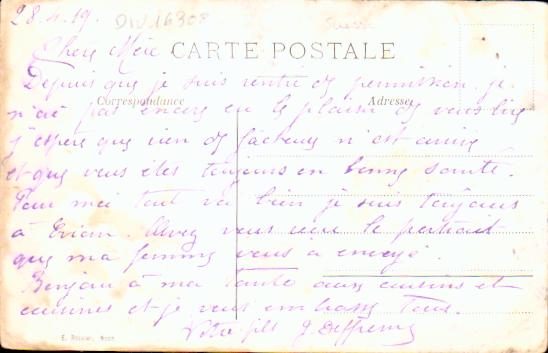 28.4.19. DIV16308
Chere Mère CARTE POSTALE
Depuis que je suis rentré de permission je
Correspondance Adresse
n'ai pas encore eu le plaisir de vous lire
j'espere que rien de facheux n'est arrivé
et que vous êtes toujours en bonne santé.
Pour moi tout va bien je suis toujours
à Evian. Avez vous reçu le portrait
que ma femme vous a envoyé.
Bonjour à ma tante aux cousins et
cousines et je vous embrasse tous.
Votre fils J.